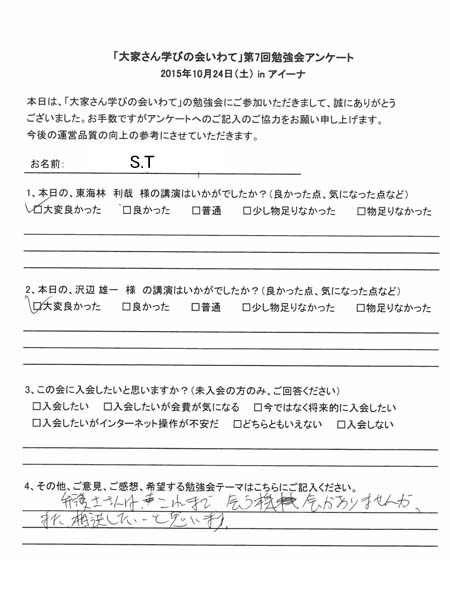 「大家さん学びの会いわて」第7回勉強会アンケート
2015年10月24日(土) in アイーナ
本日は、「大家さん学びの会いわて」の勉強会にご参加いただきまして、誠にありがとう
ございました。お手数ですがアンケートへのご記入のご協力をお願い申し上げます。
今後の運営品質の向上の参考にさせていただきます。
お名前: S.T
1、本日の、東海林 利哉 様の講演はいかがでしたか?(良かった点、気になった点など)
☑大変良かった □良かった □普通 □少し物足りなかった □物足りなかった
2、本日の、沢辺 雄一 様 の講演はいかがでしたか?(良かった点、気になった点など)
☑大変良かった □良かった □普通 □少し物足りなかった □物足りなかった
3、この会に入会したいと思いますか?(未入会の方のみ、ご回答ください)
□入会したい □入会したいが会費が気になる □今ではなく将来的に入会したい
□入会したいがインターネット操作が不安だ □どちらともいえない □入会しない
4、その他、ご意見、ご感想、希望する勉強会テーマはこちらにご記入ください。
弁護士さんは、これまで 会う機会がありませんが、
また、相談したいと思います。